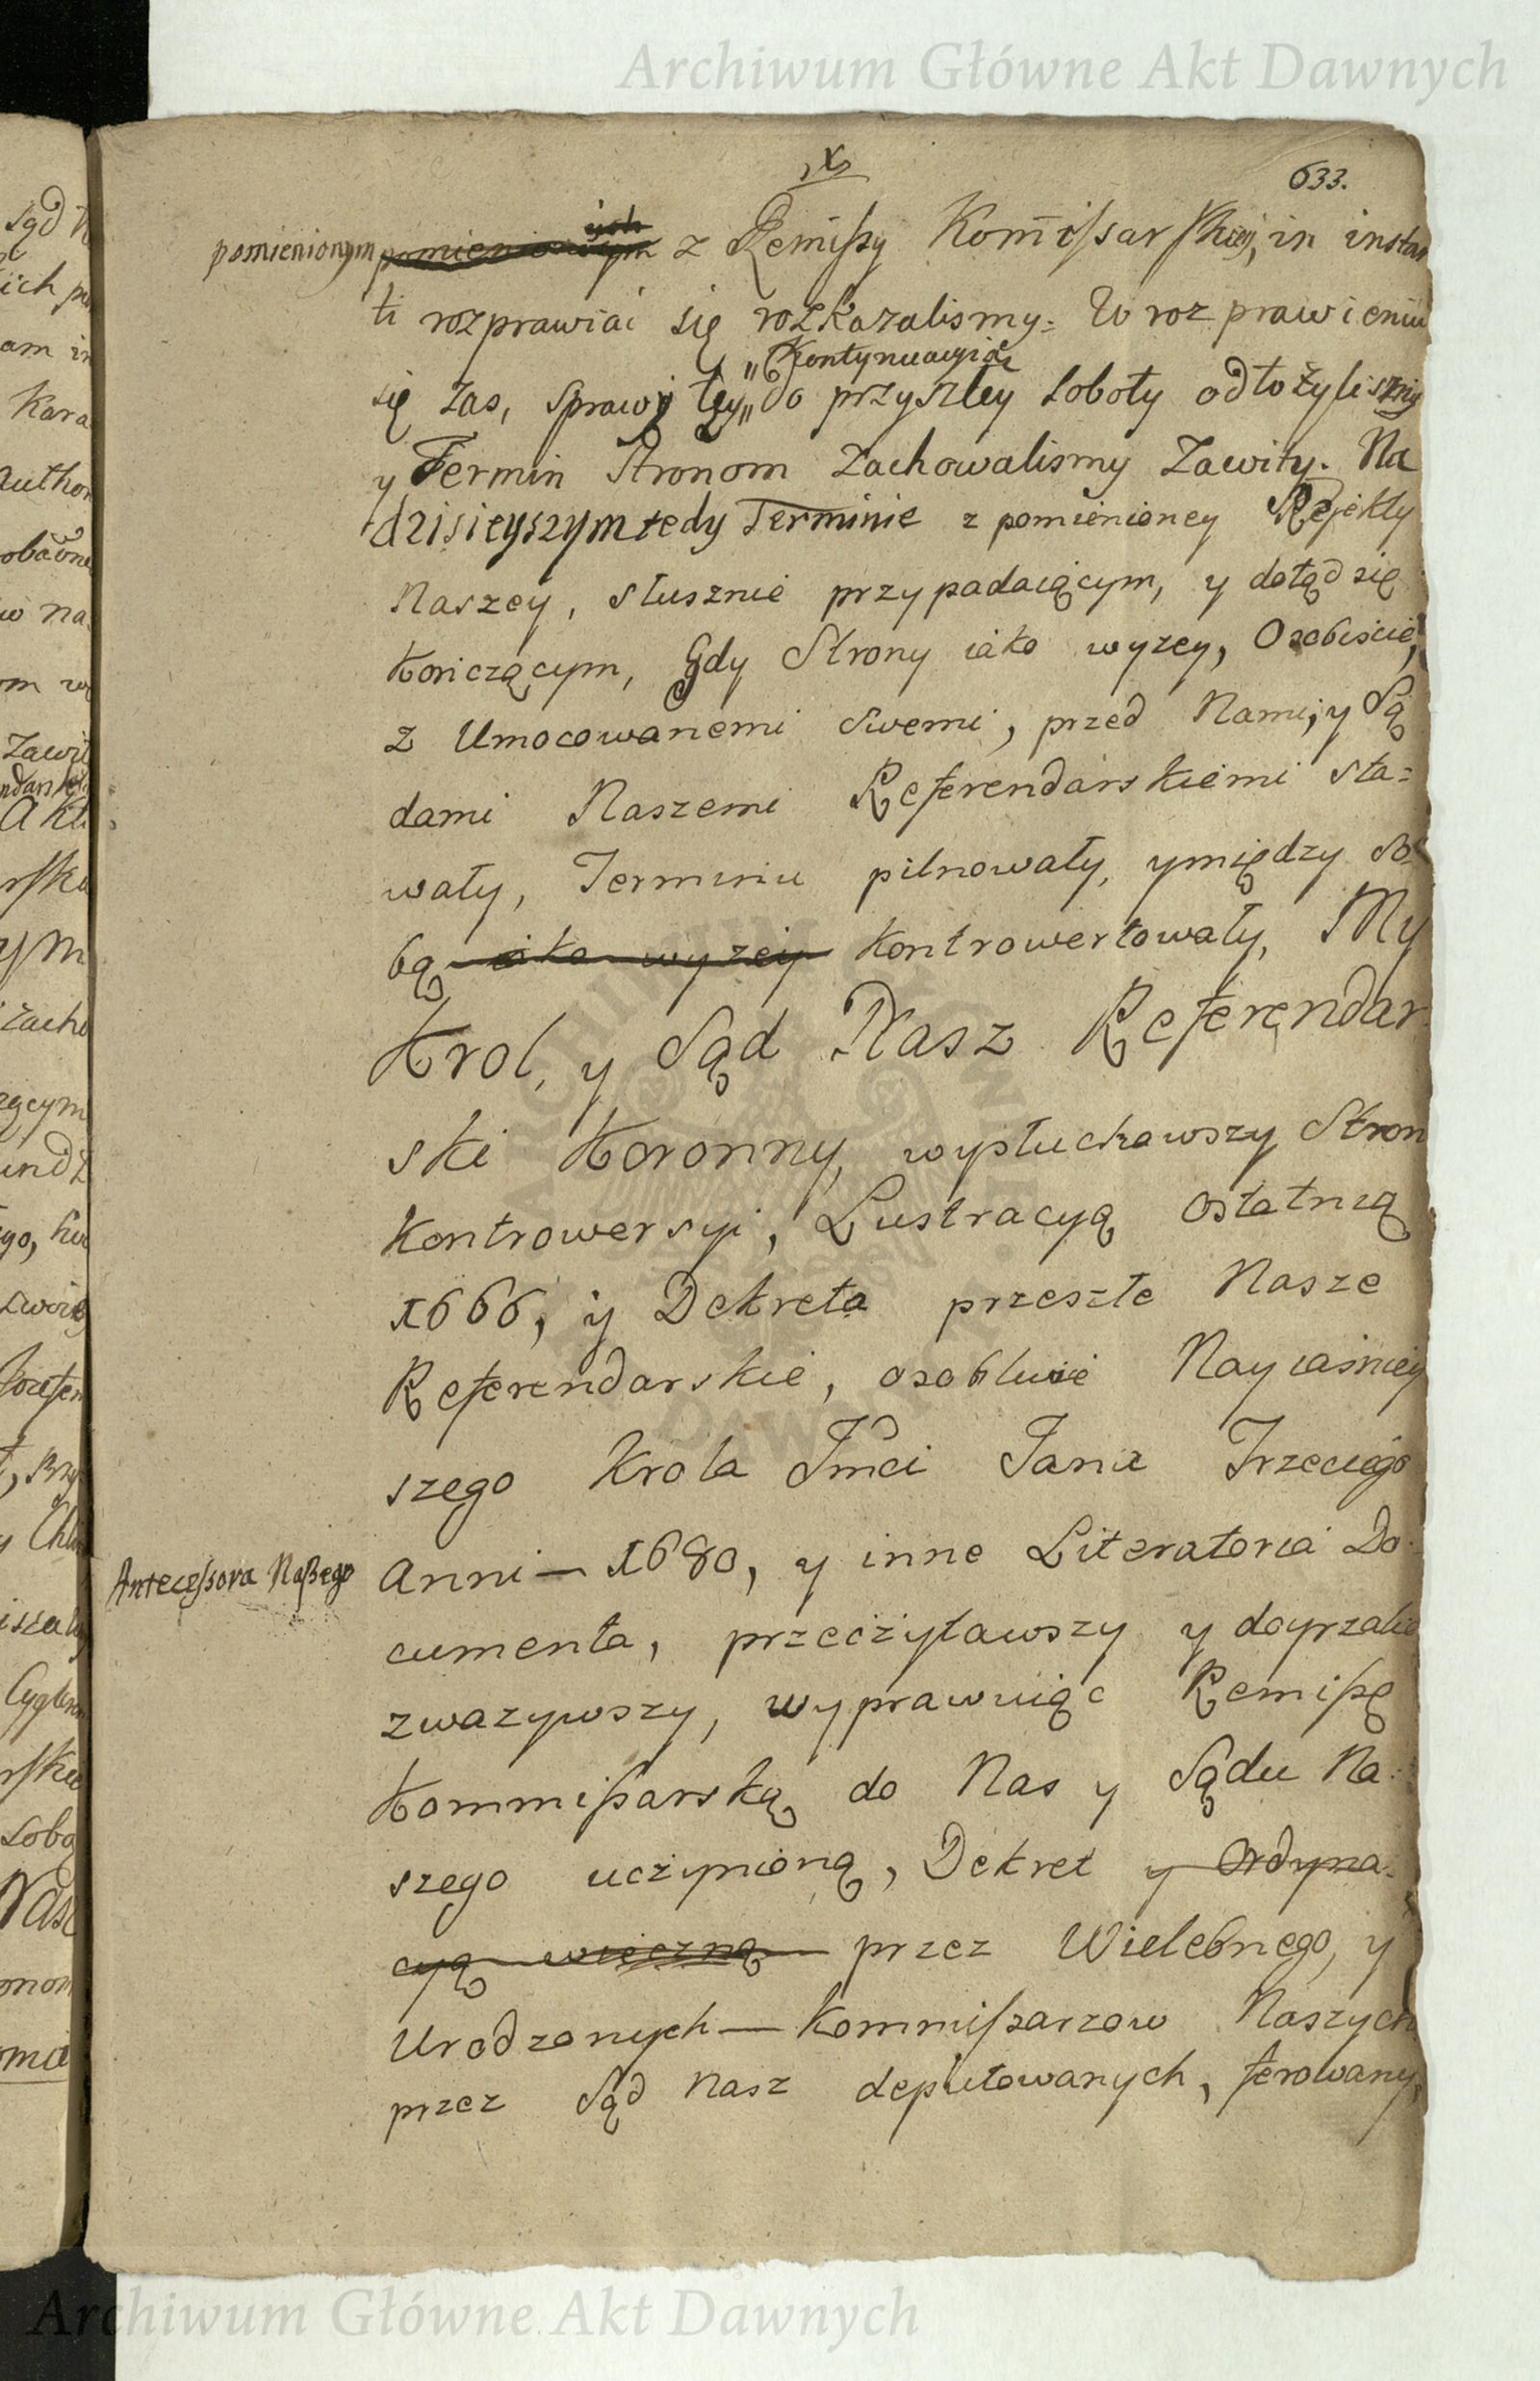 Archiwum Główne Akt Dawnych
633.
pomienionym pomienionym ych z Remissy Kommissarskiey, in instan
ti rozprawiać się rozkazalismy. W rozprawieniu
Kontynuacyią
się zas, sprawy tey do przyszłey soboty odłożylismy
y Termin Stronom zachowalismy Zawity. Na
dzisieyszym tedy Terminie z pomienioney Rejekty
Naszey, słusznie przypadaiącym, y dotąd się
kończącym, Gdy Strony iako wyzey, Osobiscie,
z Umocowanemi Swemi, przed Nami, y Są
dami Naszemi Referendarskiemi sta=
wały, Terminu pilnowały, y między So
bą iako wyzey kontrowertowały, My
Krol, y Sąd Nasz Referendar
ski Koronny, wysłuchawszy Stron
kontrowersyi, Lustracyą ostatnią
1666, y Dekreta przeszłe Nasze
Referendarskie, osobliwie Nayiasniey
szego Krola Jmci Jana Trzeciego
Antecessora Naszego
Anni 1680, y inne Literatoria Do
cumenta, przeczytawszy y doyrzale
zwazywszy, wyprawuiąc Remissę
Kommissarską do Nas y Sądu Na
szego uczynioną, Dekret y Ordyna
cyą wieczną przez Wielebnego, y
Urodzonych Kommissarzow Naszych
przez Sąd Nasz deputowanych, ferowany,
Archiwum Główne Akt Dawnych